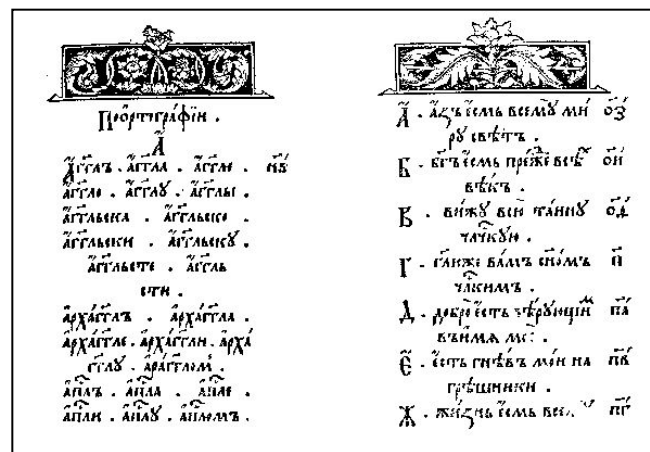 По ѻ҆ртогра́фїи .
А҆
А҆́гг҃лъ . а҆́гг҃ла . а҆́гг҃лє .
а҆́гг҃ло . а҆́гг҃лу . а҆́гг҃лы .
а҆́гг҃льска . а҆́гг҃льско .
а҆́гг҃льски . а҆́гг҃льску .
а҆́гг҃льсте . а҆́гг҃ль
сти .
а҆рха́гг҃лъ . а҆рха́гг҃ла .
а҆рха́гг҃ле . а҆рха́гг҃ли . а҆рха́
гг҃лу . а҆ра́гг҃ломъ .
а҆п҃лъ . а҆п҃ла . а҆п҃ле .
а҆п҃ли . а҆п҃лу . а҆п҃ломъ .
А҆ . а҆́зъ є҆́смь всемꙋ̀ ми о҃з
ру свѣ́тъ .
Б . бг҃ъ є҆́смь пре́жде всѣ́х
вѣ́къ .
В . ви́жу всю̀ та́ину о҃д
члч҃кую .
Г . гл҃и же ва́мъ сн҃о́мъ
чл҃кимъ .
Д . добро̀ є҆́сть вѣ́рующимъ п҃а
въ и́мѧ мо .
Є҆ . є҆́сть гнѣ́въ мо́и на п҃в
грѣ́шники .
Ж . жи́знь є҆́смь все п҃г